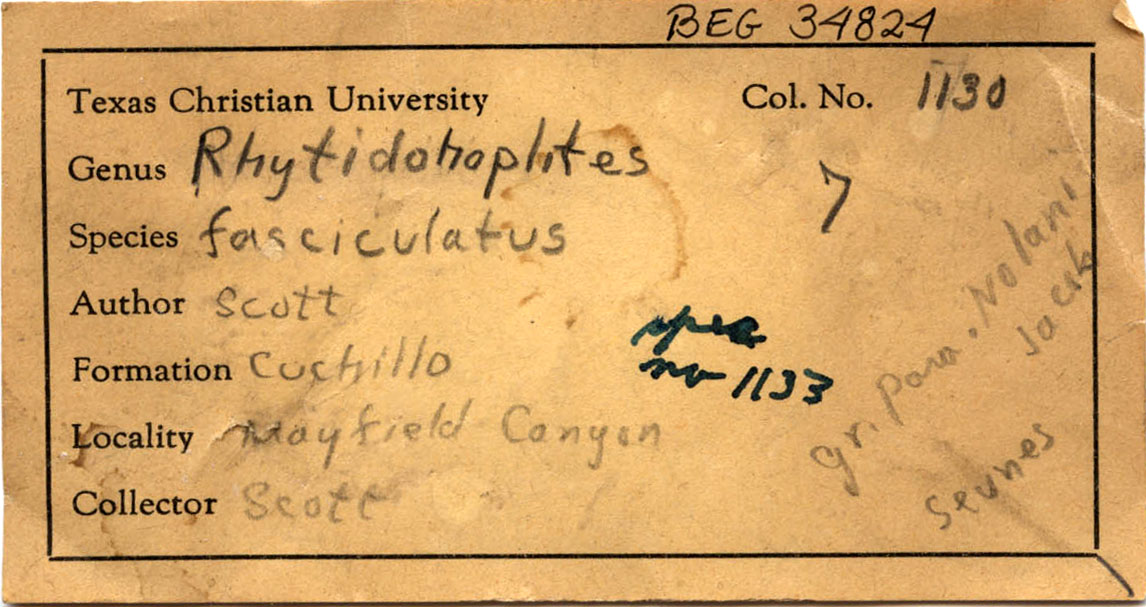 BEG 34824
Texas Christian University Col. No. 1130
Genus Rhytidohoplites 7
Species fasciculatus
Author Scott
Formation Cuchillo
Locality Mayfield Canyon
Collector Scott
spec
no 1133
gr. para. Nolani
Jack
seunes